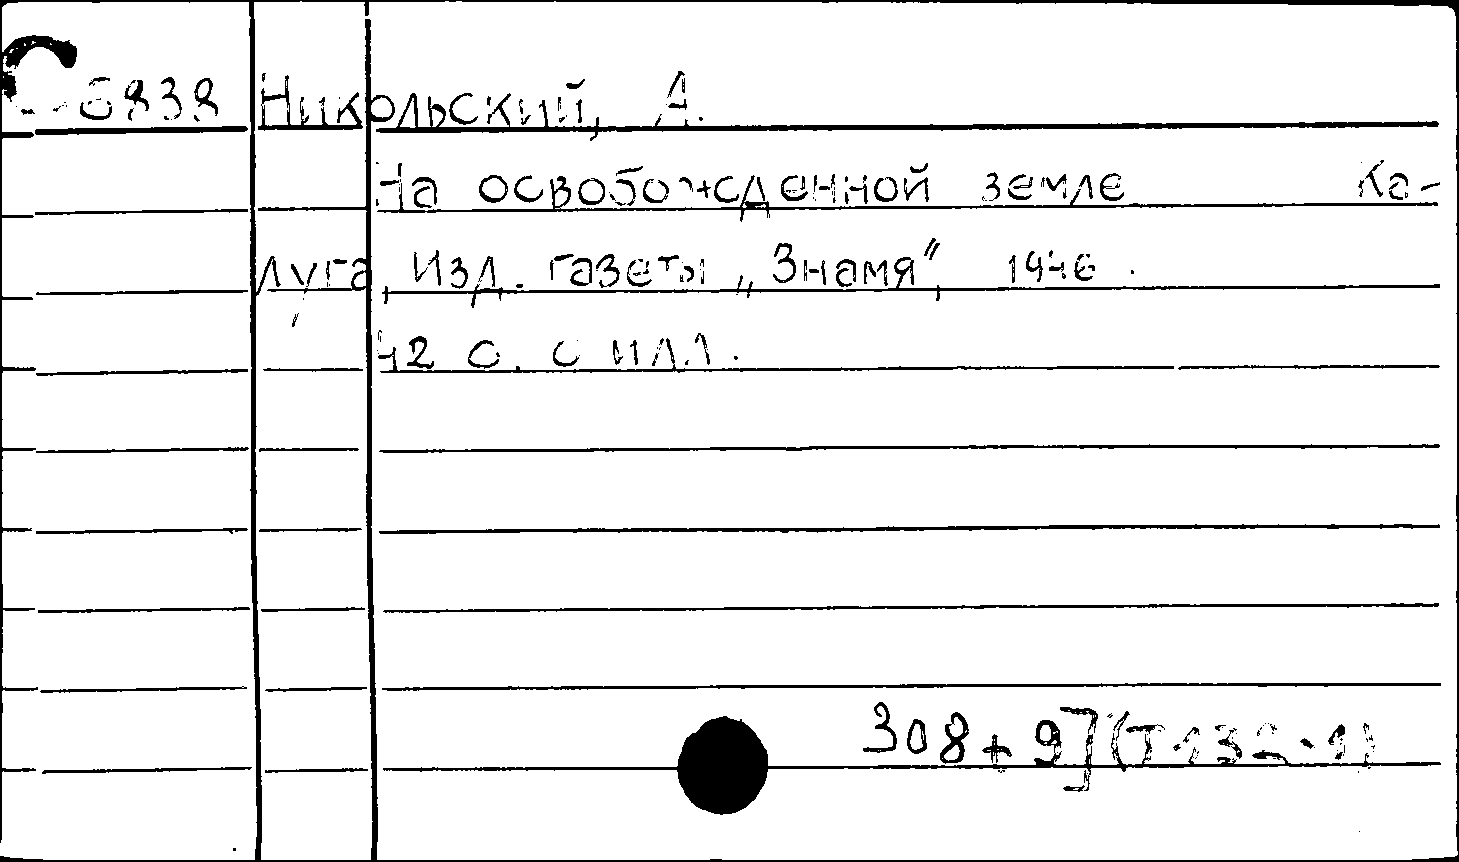 С-6838 Никольский, А.
На освобожденной земле Ка-
луга, Изд. газеты „Знамя“, 1946.
42 с. с илл.
308+9](Т·132·1)